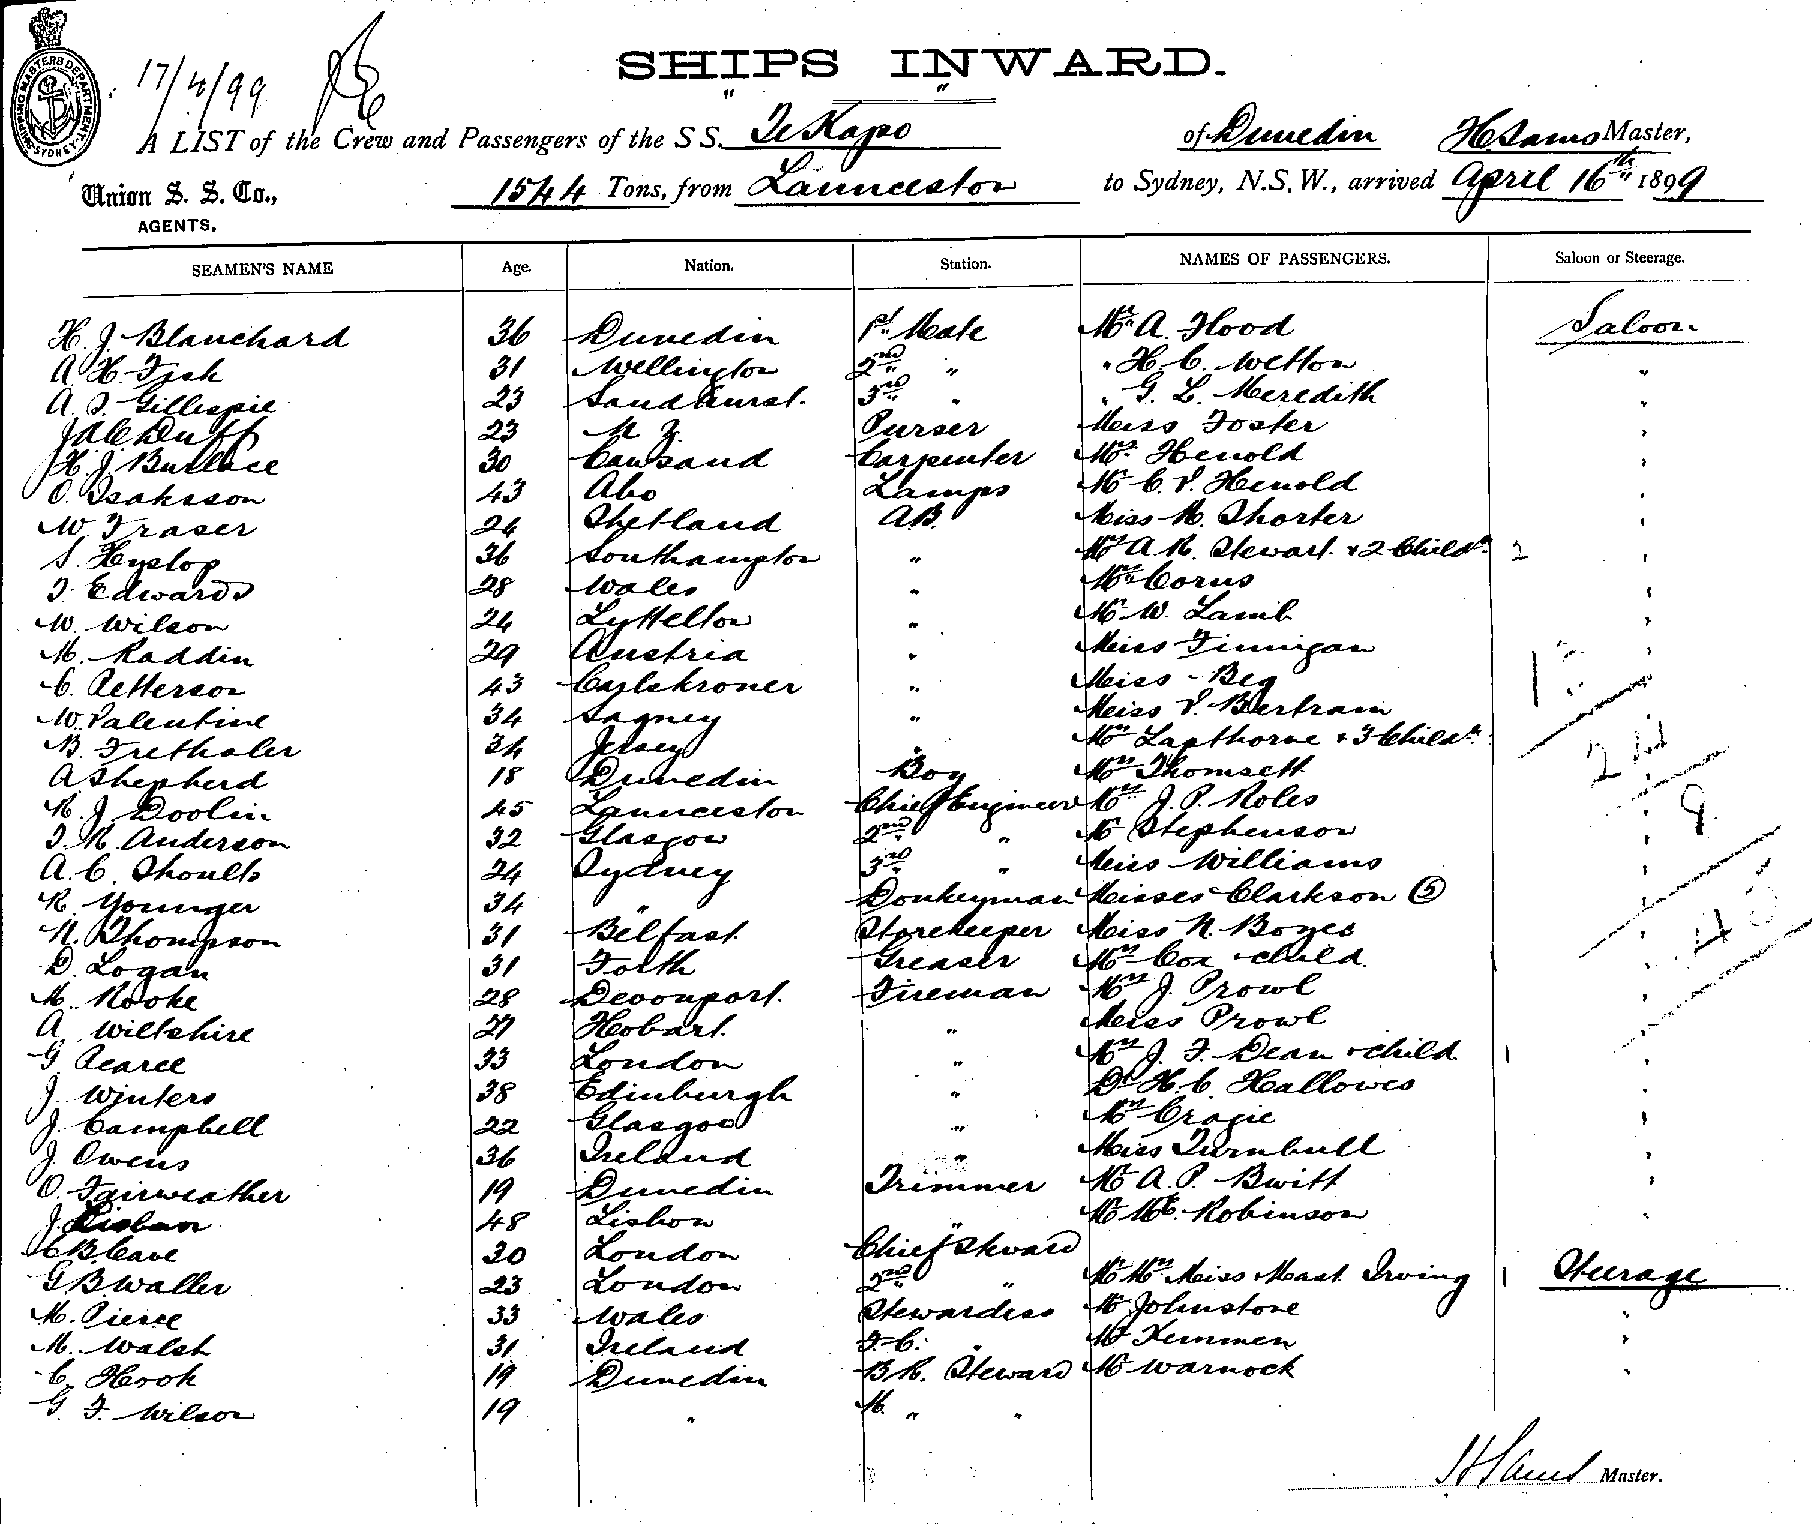 17/4/99
SHIPS INWARD.
SHIPPING MASTERS DEPARTMENT SYDNEY
A LIST of the Crew and Passengers of the S S. TeKapo of Dunedin H Sams Master,
Union S. S. Co., 1544 Tons, from Launceston to Sydney, N.S.W., arrived April 16th 1899
AGENTS.
SEAMEN'S NAME Age. Nation. Station. NAMES OF PASSENGERS. Saloon or Steerage.
H. J. Blanchard 36 Dunedin 1st Mate Mr A. Hood Saloon
A H Fish 31 Wellington 2nd " " H. C. Wetton "
A. T. Gillespie 23 Sandhurst. 3rd " " G. L. Meredith "
Duff 23 N Z. Purser Miss Foster "
H. J. Bullace 30 Cawsand Carpenter Mrs Henold "
O. Isaksson 43 Abo Lamps Mr C. V. Henold "
W Fraser 26 Shetland AB. Miss M. Shorter "
S. Hyslop 36 Southampton " A. R. Stewart + 2 Childn 2 "
T. Edwards 28 Wales " Mrs Corus "
W. Wilson 24 Lyttelton " Mr W. Lamb "
M. Raddin 29 Austria " Miss Finnigan "
C. Petterson 43 Carlskroner " Miss Beg
W. Valentine 34 Sagney " Miss V. Bertram
B. Trethaler 34 Jersey " Mrs Lapthorne + 3 Childn
A Shepherd 18 Dunedin Boy Mrs Thomsett
R. J. Doolin 45 Launceston Chief Engineer Mrs J. P. Roles 9
T. R. Anderson 32 Glasgow 2nd " Mr Stephenson
A. C. Shoults 24 Sydney 3rd " Miss Williams
R. Younger 34 " Donkeyman Misses Clarkson (5)
N. Thompson 31 Belfast Storekeeper Miss N. Boyes
D. Logan 31 Forth Greaser Mrs Cox + child
M. Rooke 28 Devonport. Fireman Mrs J. Prowl
A. Wiltshire 27 Hobart. " Miss Prowl
G Pearce 33 London " Mrs J. F. Dean + child 1
J. Winters 38 Edinburgh " Dr H. C. Hallowes
J. Campbell 22 Glasgow " Mrs Cragie
J. Owens 36 Ireland " Miss Turnbull
O. Fairweather 19 Dunedin Trimmer Mr A. P. Bwitt
J. 48 Lisbon " Mr Robinson
C B. Cave 30 London Chief Steward
G B Waller 23 London 2nd " Mr Mrs Miss Mast. Irving 1 Steerage
M. Pierce 33 Wales Stewardess Mr Johnstone "
M. Walsh 31 Ireland F. C. " Mr Kemmen "
C. Hook 19 Dunedin B R. Steward Mr Warnock "
G. F. Wilson 19 " M. " "
H Sams Master.